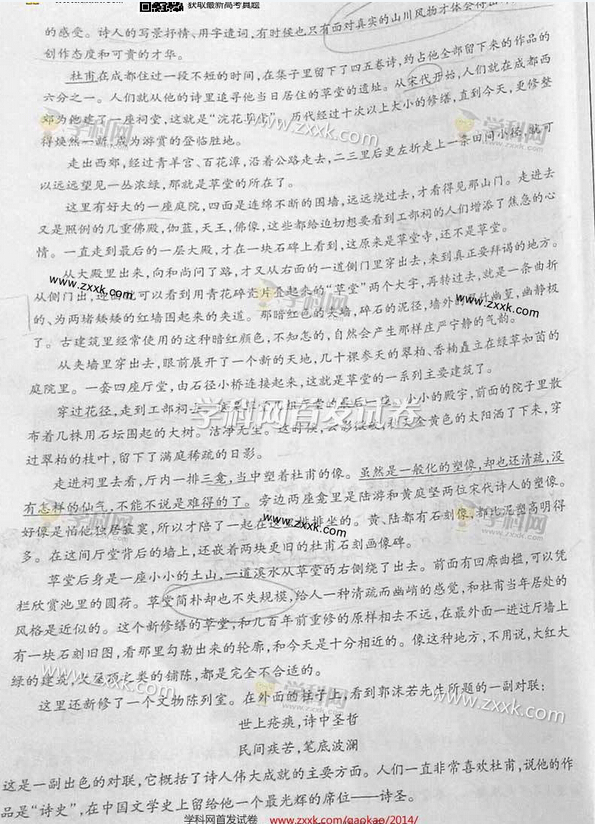 获取最新高考真题
的感受。诗人的写景抒情、用字遣词，有时候也只有面对真实的山川风物才体会得出
刻作态度和可贵的才华。
杜甫在成都住过一段不短的时间，在集子里留下了四五卷诗，约占他全部留下来的作品的
六分之一。人们就从他的诗里追寻他当日居住的草堂的遗址。从宋代开始，人们就在成都西
郊为他建了一座祠堂，这就是“浣花草堂”。历代经过十次以上大小的修缮，直到今天，更修整
得焕然一新，成为游赏的登临胜地。
走出西郊，经过青羊宫、百花潭，沿着公路走去，二三里后更左折走上一条田间小路，就可
以远远望见一丛浓绿，那就是草堂的所在了。
这里有好大的一座庭院，四面是连绵不断的围墙，远远绕过去，才看得见那山门。走进去
又是照例的几重佛殿，伽蓝，天王，佛像，这些都给迫切想要看到工部祠的人们增添了焦急的心
情。一直走到最后的一层大殿，才在一块石碑上看到，这原来是草堂寺，还不是草堂。
从大殿里出来，向和尚问了路，才又从右面的一道侧门里穿出去，来到真正要拜谒的地方。
从侧门出，可以看到用青花碎瓷片叠起来的“草堂”两个大字，再转过去，就是一条曲折
的、为两堵矮矮的红墙围起来的夹道。那暗红色的夹墙，碎石的泥径，墙外幽篁，幽静极
了。古建筑里经常使用的这种暗红颜色，不知怎的，自然会产生那样庄严宁静的气韵。
从夹墙里穿出去，眼前展开了一个新的天地，几十棵参天的翠柏、香楠矗立在绿草如茵的
庭院里。一套四座厅堂，由石径小桥连接起来，这就是草堂的一系列主要建筑了。
穿过花径，走到工部祠去，小小的殿宇，前面的院子里散
布着几株用石坛围起的大树。洁净无尘。这时候，金黄色的太阳洒了下来，穿
过翠柏的枝叶，留下了满庭稀疏的日影。
走进祠里去看，厅内一排三龛，当中塑着杜甫的像。虽然是一般化的塑像，却也还清疏，没
有怎样的仙气，不能不说是难得的了。旁边两座龛里是陆游和黄庭坚两位宋代诗人的塑像。
好像是怕他独居寂寞，所以才陪了一起在这里排排坐的。黄、陆都有石刻像，都比泥塑高明得
多。在这间厅堂背后的墙上，还嵌着两块更旧的杜甫石刻画像碑。
草堂后身是一座小小的土山，一道溪水从草堂的右侧绕了出去。前面有回廊曲槛，可以凭
栏欣赏池里的圆荷。草堂简朴却也不失规模，给人一种清疏而幽峭的感觉，和杜甫当年居处的
风格是近似的。这个新修缮的草堂，和几百年前重修的原样相去不远，在最外面一进过厅墙上
有一块石刻旧图，看那里勾勒出来的轮廓，和今天是十分相近的。像这种地方，不用说，大红大
绿的建筑，大屋顶之类的铺陈，都是完全不合适的。
这里还新修了一个文物陈列室。在外面的柱子上，看到郭沫若先生所题的一副对联：
世上疮痍，诗中圣哲
民间疾苦，笔底波澜
这是一副出色的对联，它概括了诗人伟大成就的主要方面。人们一直非常喜欢杜甫，说他的作
品是“诗史”，在中国文学史上留给他一个最光辉的席位——诗圣。
学科网首发试卷 www.zxxk.com/gaokao/2014/
学科网
www.zxxk.com
学科网首发试卷